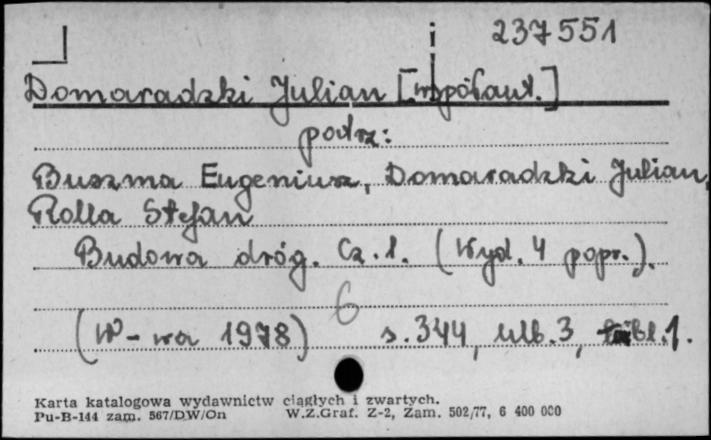 237551
Domaradzki Julian [współaut.]
patrz:
Buszma Eugeniusz, Domaradzki Julian,
Rolla Stefan
Budowa dróg. Cz. 1. (Wyd. 4 popr.).
6
(W-wa 1978) s. 344, nlb. 3, bl. 1.
Karta katalogowa wydawnictw ciągłych i zwartych.
Pu-B-144 zam. 567/DW/On W.Z.Graf. Z-2, Zam. 502/77, 6 400 000